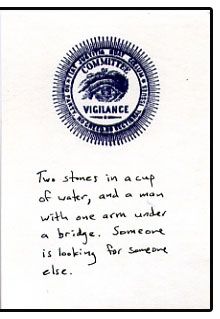 COMMITTEE
VIGILANCE
Two stones in a cup
of water, and a man
with one arm under
a bridge. Someone
is looking for someone
else.